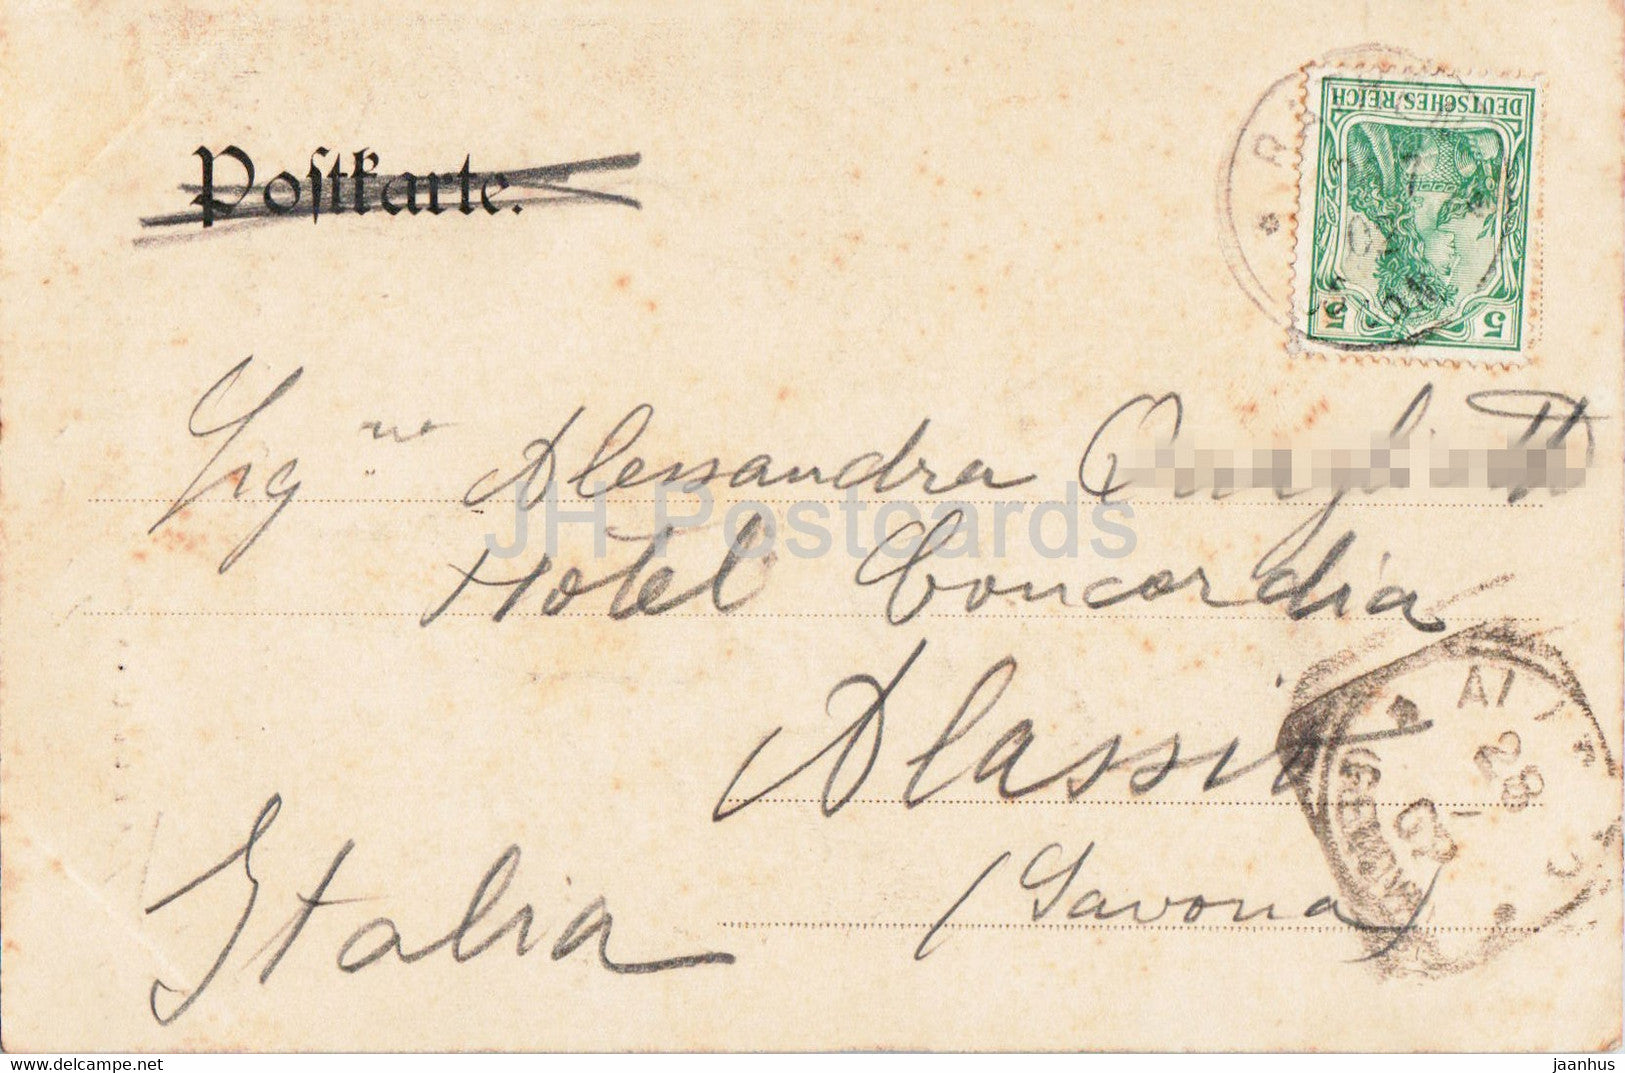 Postkarte.
DEUTSCHES REICH
5 5
Sig.na Alessandra
Hotel Concordia
Alassio
(Savona)
Italia
28
07
(GENOVA)
JH Postcards
https://www.delcampe.net
jaanhus